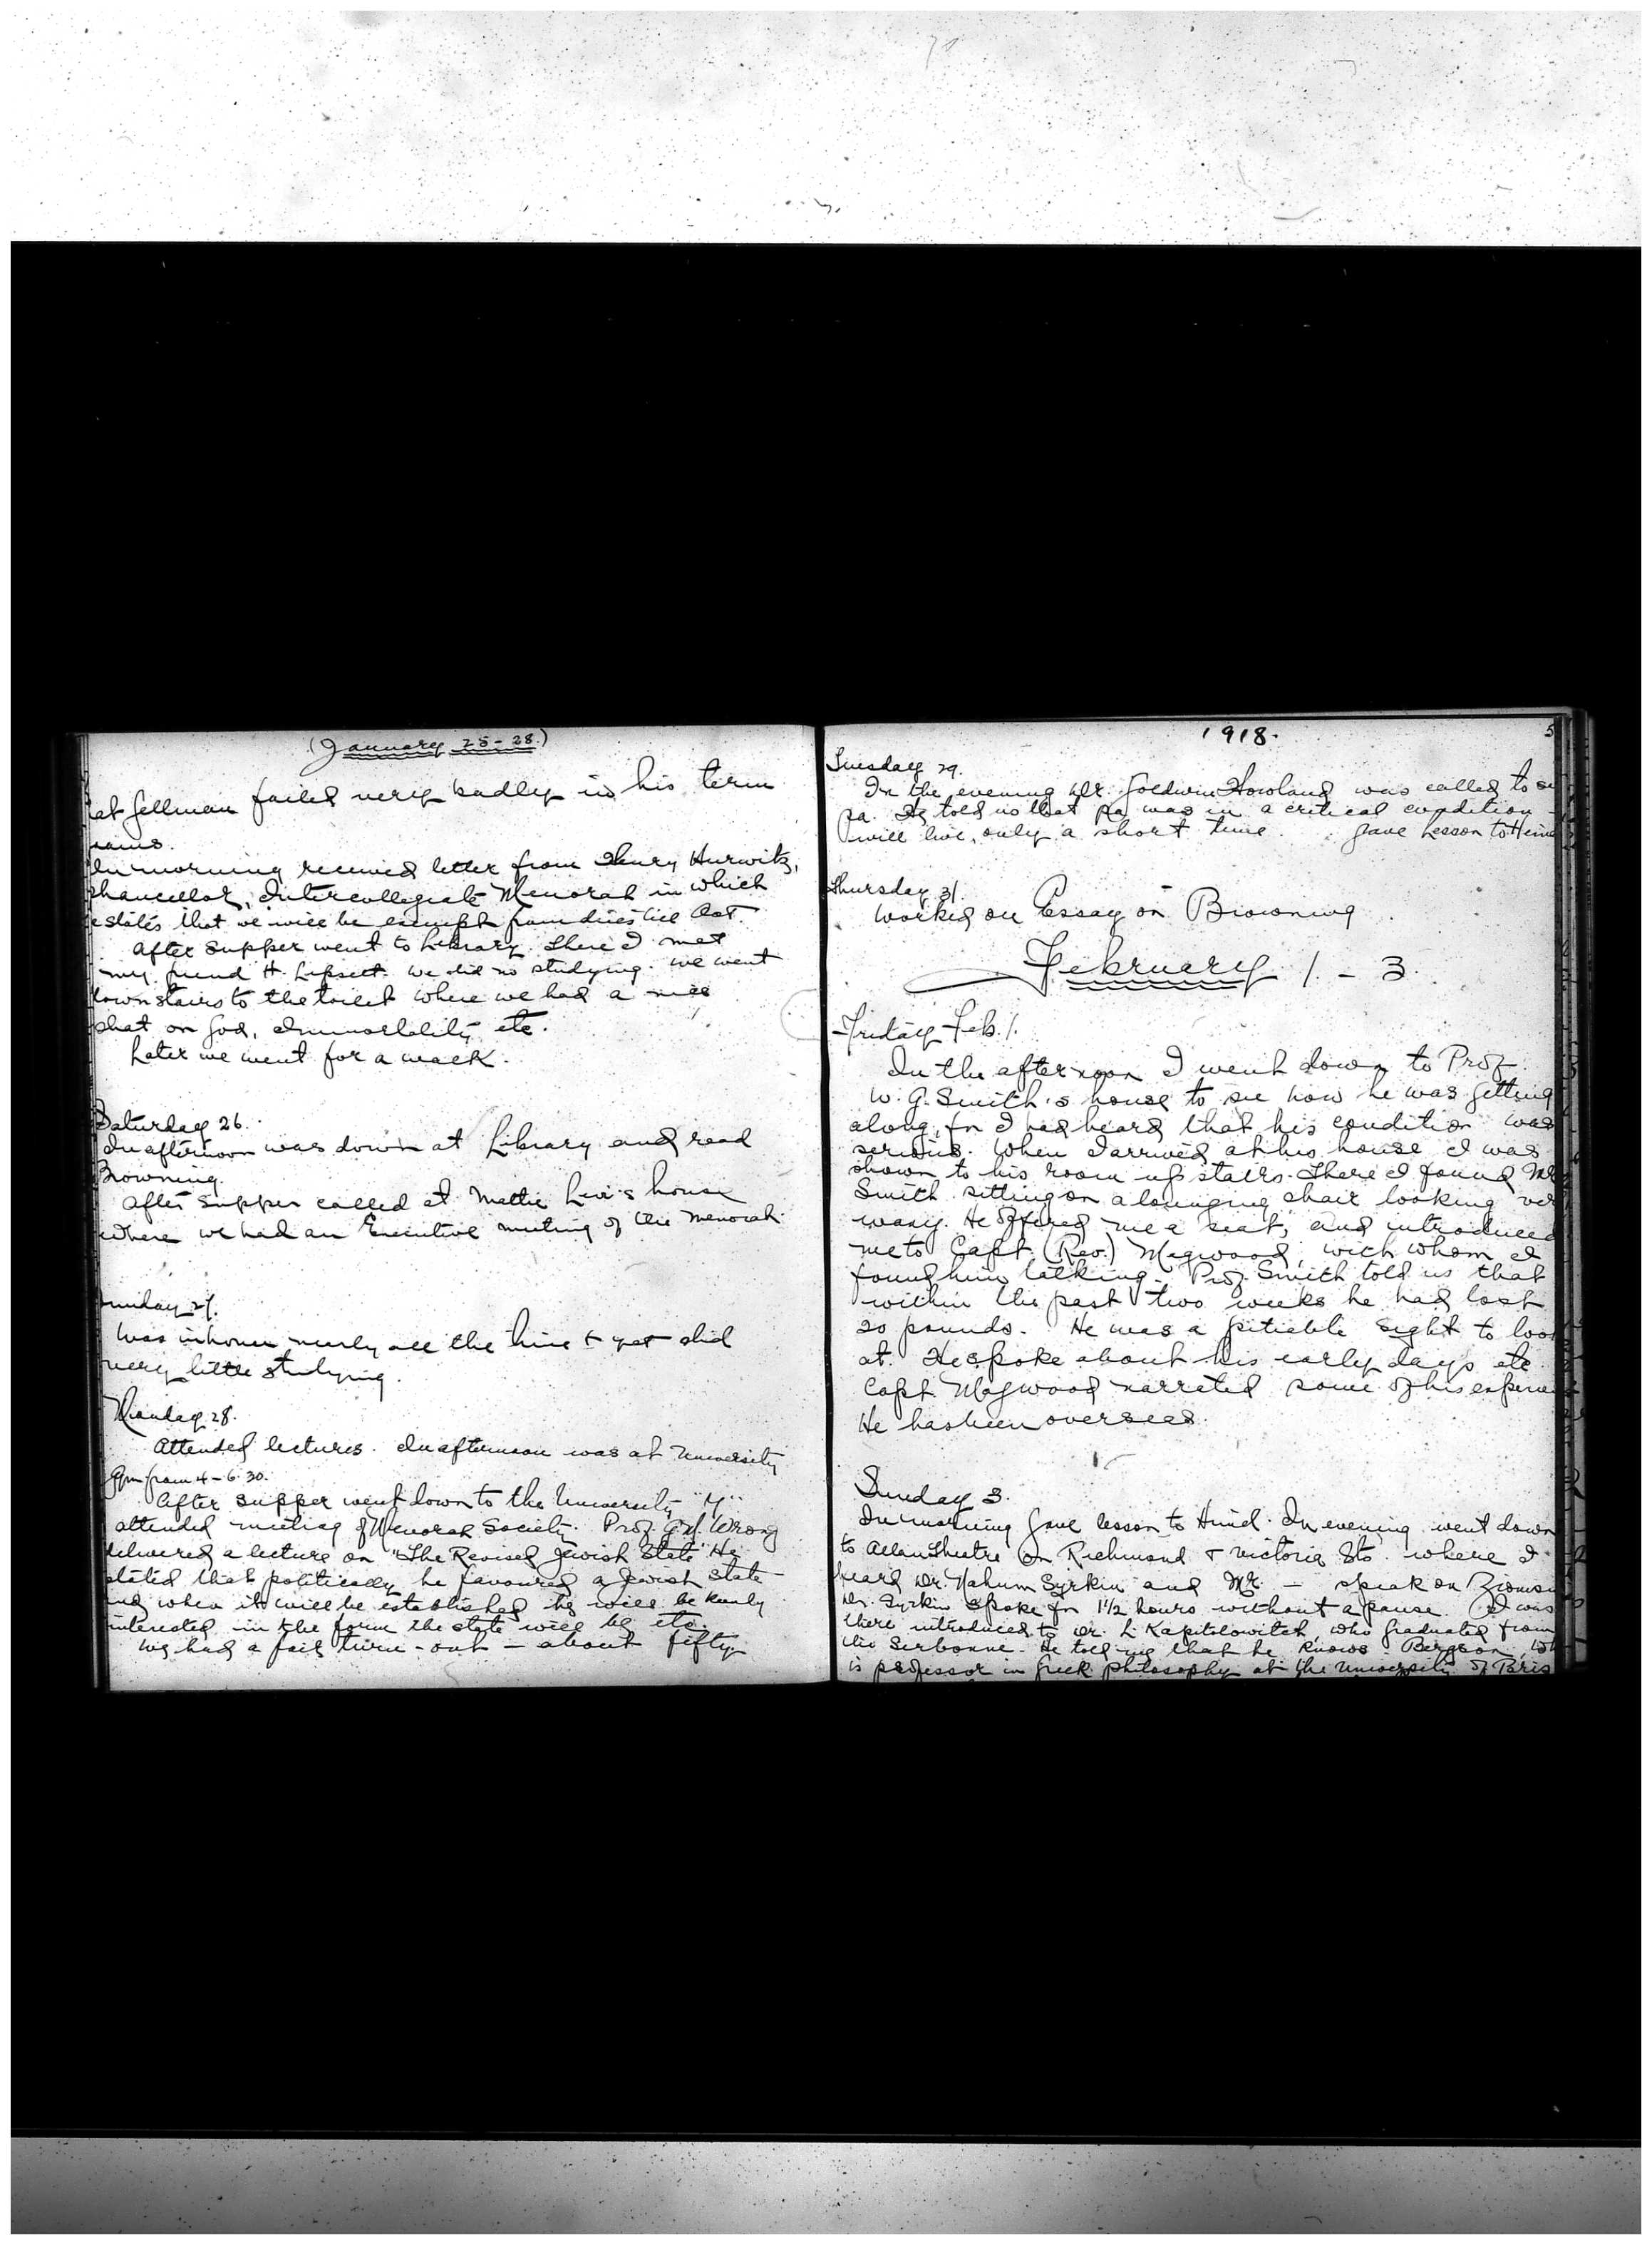 (January 25-28.)
at Gellman failed very badly in his term
In morning received letter from Henry Hurwitz,
chancellor, Intercollegiate Menorah in which
states that we will be exempt from dues till Oct.
After supper went to Library. There I met
my friend H. Lipsett. We did no studying. We went
down stairs to the toilet where we had a nice
chat on God, Immortality, etc.
Later we went for a walk.
Saturday 26.
In afternoon was down at Library and read
Browning.
After supper called at Mattie Levi's house
where we had an Executive meeting of the Menorah.
Sunday 27.
Was in house nearly all the time & yet did
very little studying.
Monday 28.
Attended lectures. In afternoon was at University
Gym from 4-6.30.
After supper went down to the University "Y"
attended meeting of Menorah Society. Prof. G.M. Wrong
delivered a lecture on "The Revised Jewish State" He
stated that politically he favoured a Jewish State -
and when it will be established he will be keenly
interested in the form the state will be etc.
We had a fair turn-out - about fifty
1918.
5
Tuesday 29.
In the evening Dr. Goldwin Howland was called to see
pa. He told us that pa was in a critical condition -
will live only a short time. Gave lesson to
Thursday 31.
Worked on Essay on Browning.
February 1 - 3.
Friday Feb. 1.
In the afternoon I went down to Prof.
W. G. Smith's house to see how he was getting
along, for I had heard that his condition was
serious. When I arrived at his house I was
shown to his room up stairs. There I found Mr
Smith sitting on a lounging chair looking ver
weary. He offered me a seat, and introduced
me to Capt. (Rev.) Magwood, with whom I
found him talking. Prof. Smith told us that
within the past two weeks he had lost
20 pounds. He was a pitiable sight to look
at. He spoke about his early days etc.
Capt. Magwood narrated some of his experien
He has been overseas.
Sunday 3.
In morning gave lesson to Hind. In evening went down
to Allan Theatre on Richmond & Victoria Sts. where I
heard Dr. Nahum Syrkin and Mr. — speak on Zionism
Dr. Syrkin spoke for 1 1/2 hours without a pause. I was
there introduced to Dr. L. Kapitolowitch, who graduated from
the Serbonne. He told me that he knows Bergson, wh
is professor in Greek philosophy at the University of Paris